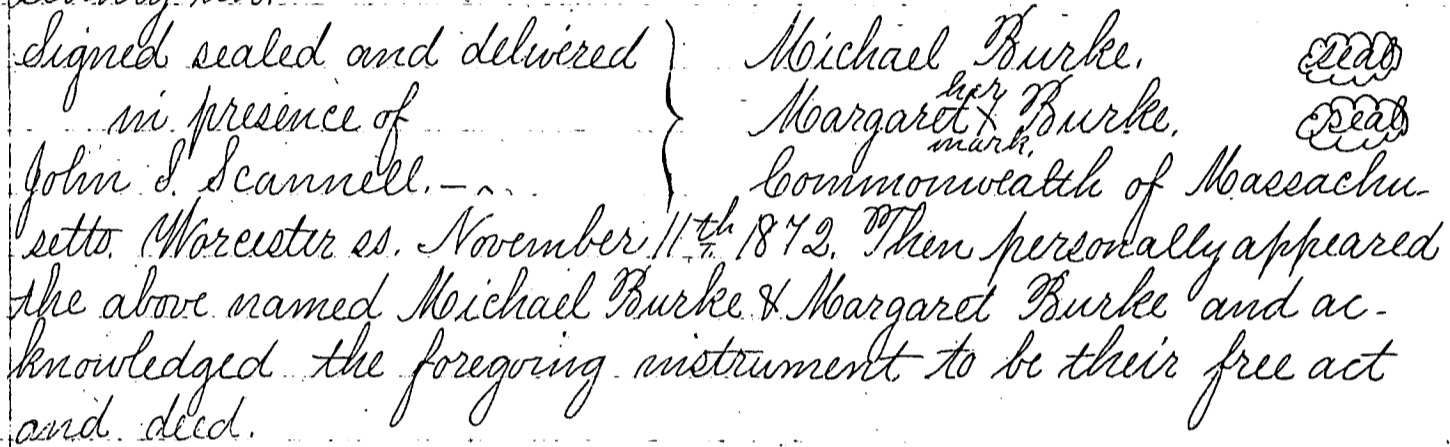 Signed sealed and delivered } Michael Burke. seal
in presence of her
Margaret X Burke. seal
mark.
John S. Scannell. — Commonwealth of Massachu-
setts. Worcester ss. November 11th 1872. Then personally appeared
the above named Michael Burke & Margaret Burke and ac-
knowledged the foregoing instrument to be their free act
and deed.